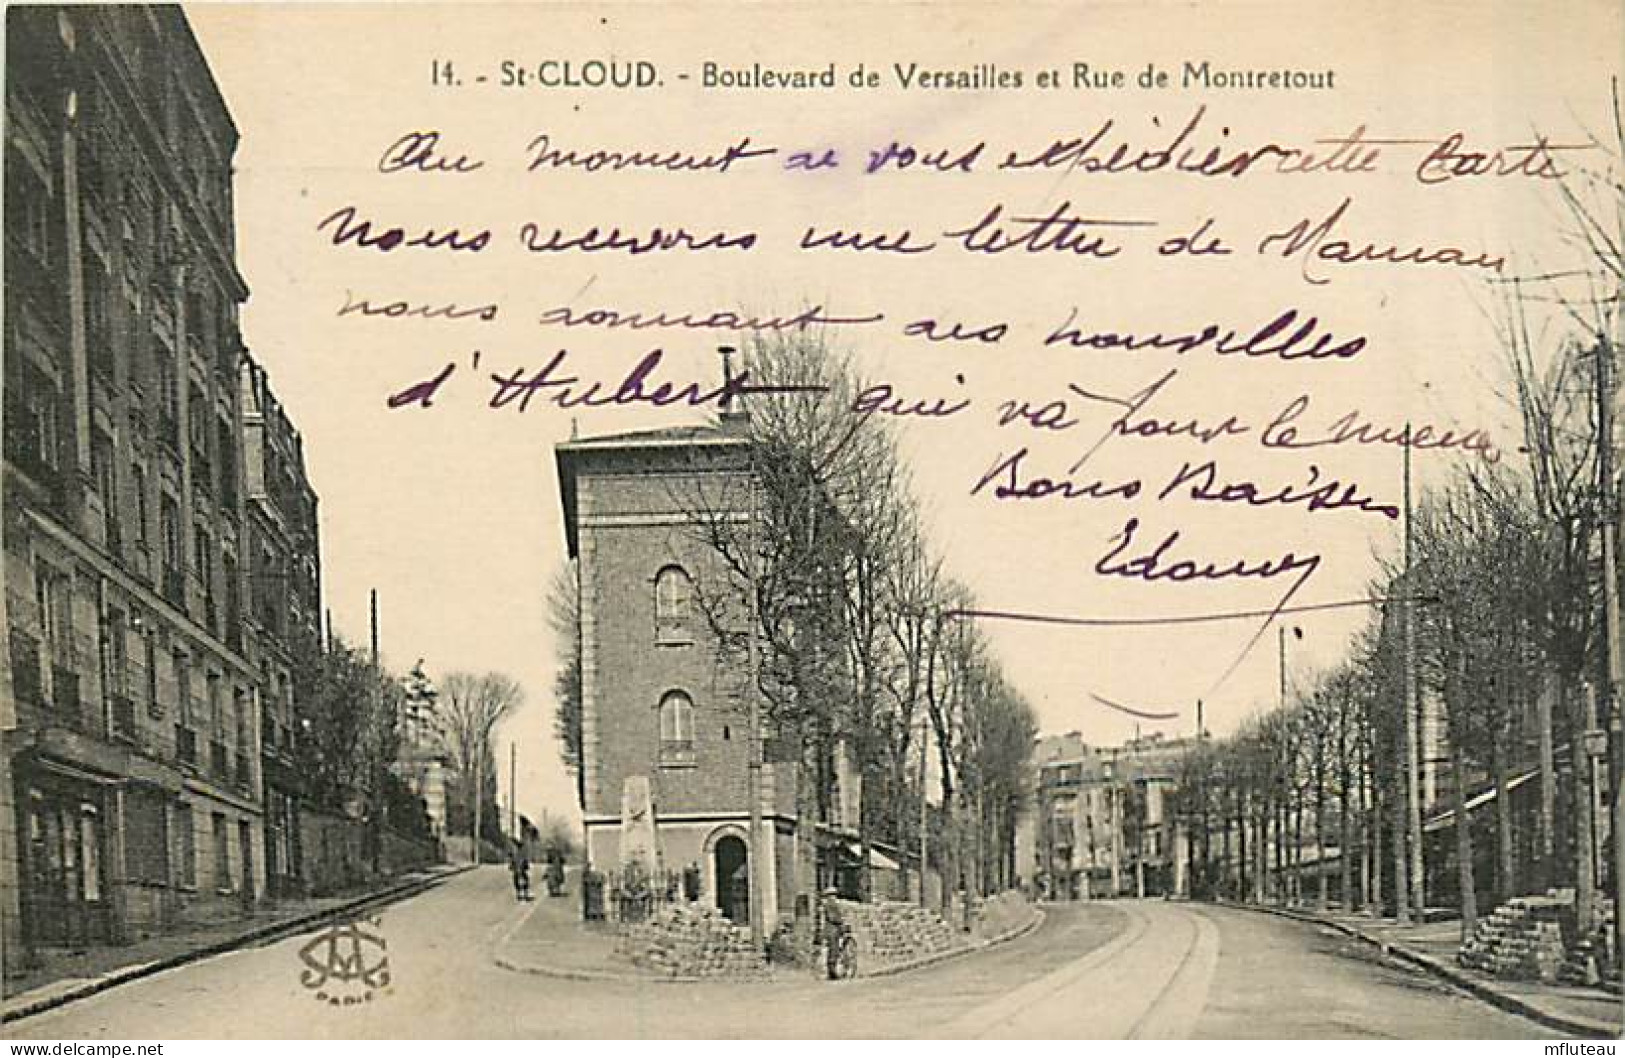 14. - St-CLOUD. - Boulevard de Versailles et Rue de Montretout
Au moment de vous expédier cette Carte
Nous recevons une lettre de Maman
nous donnant des nouvelles
d'Hubert qui va pour le mieux.
Bons Baisers
Edouard
PARIS
delcampe.net
mfluteau